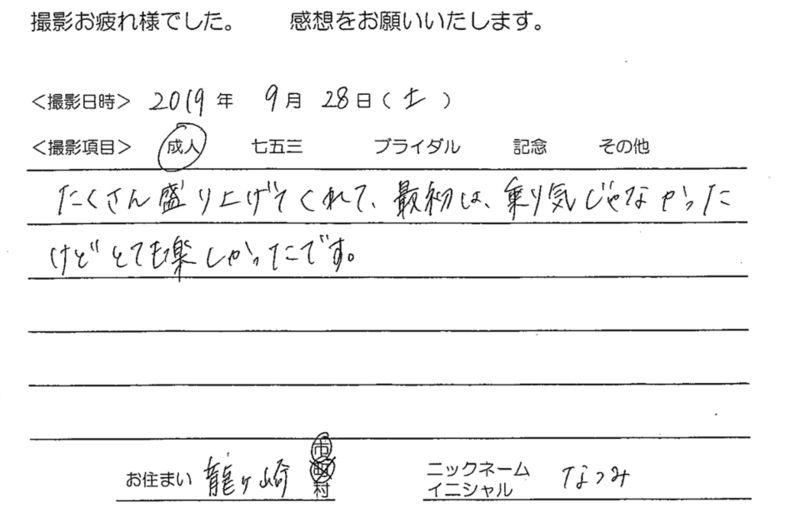 撮影お疲れ様でした。 感想をお願いいたします。
＜撮影日時＞ 2019年 9月 28日(土)
＜撮影項目＞ 成人 七五三 ブライダル 記念 その他
たくさん盛り上げてくれて、最初は、乗り気じゃなかった
けどとても楽しかったです。
お住まい 龍ヶ崎 市町村 ニックネーム イニシャル なつみ